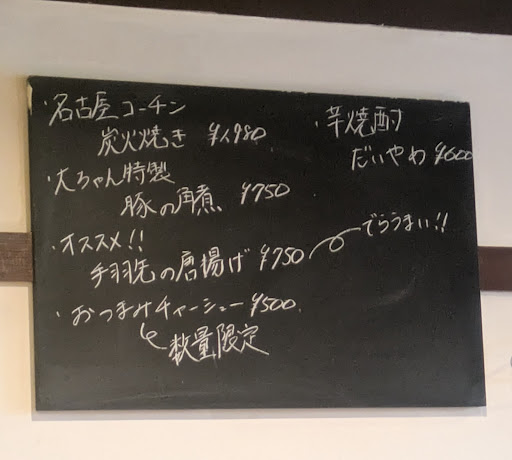 ・名古屋コーチン
炭火焼き ¥1,980
・大ちゃん特製
豚の角煮 ¥750
・オススメ!!
手羽先の唐揚げ ¥750
でらうまい!!
・おつまみチャーシュー ¥500
数量限定
・芋焼酎
だいやめ ¥600